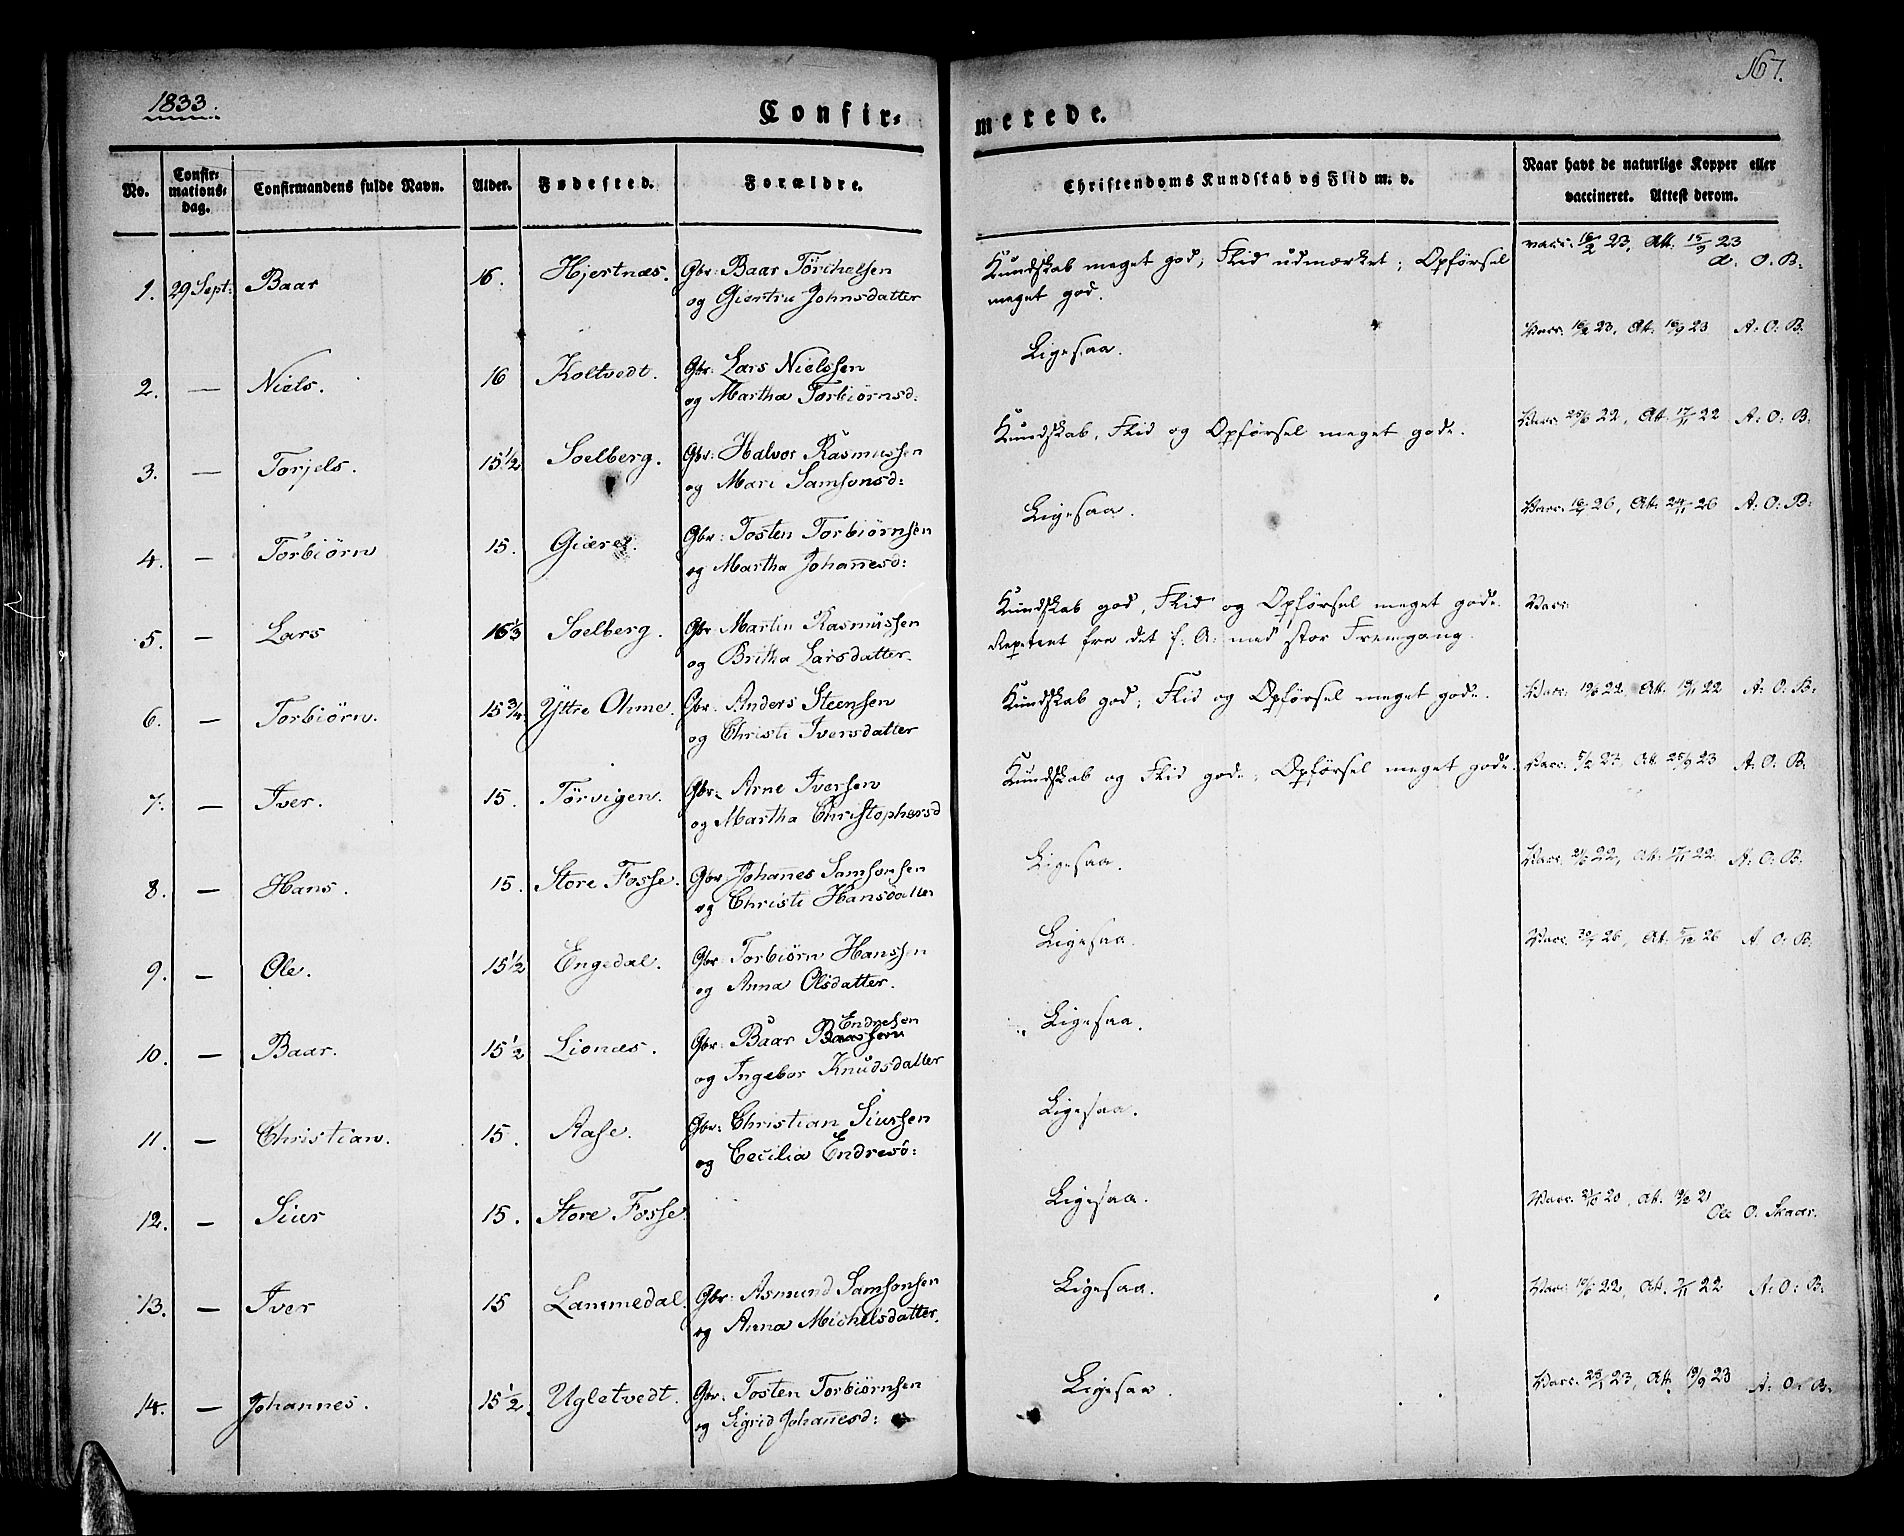 1833.
167.
Confir-
merede.
No.
Confir-
mations-
dag.
Confirmandens fulde Navn.
Alder.
Fødested.
Forældre.
Christendoms Kundskab og Flid m. v.
Naar havt de naturlige Kopper eller
vaccineret. Attest derom.
1. 29 Sept: Baar 16. Hjertnæs. Gbr: Baar Törchelsen
og Giertru Johnsdatter
Kundskab meget god; Flid udmærket; Opførsel
meget god.
vacc: 16/2 23, Att: 15/9 23
A. O. B:
2. — Niels. 16 Koltvedt. Gbr: Lars Nielssen
og Martha Torbiørnsd:
Ligesaa.
Vacc: 23, Att: 23 A: O: B.
3. — Torjels. 15 1/2 Soelberg. Gbr: Halvor Rasmussen
og Mari Samsonsd:
Kundskab, Flid og Opførsel meget gode.
Vacc: 22, Att: 22 A: O: B:
4. — Torbiørn 15. Giære. Gbr: Tosten Torbiørnsen
og Martha Johannesd:
Ligesaa.
Vacc: 26, Att: 24/11 26 A: O: B:
5. — Lars 16 1/3 Soelberg. Gbr: Martin Rasmussen
og Britha Larsdatter.
Kundskab god, Flid og Opførsel meget gode.
Repetent fra det f. A: med stor Fremgang.
Vacc:
6. — Torbiørn. 15 3/4 Yttre Ohme. Gbr: Anders Steensen
og Christi Iversdatter
Kundskab god; Flid og Opførsel meget gode.
Vacc: 22, Att: 22 A: O: B:
7. — Iver. 15. Törvigen. Gbr: Arne Iversen
og Martha Christophersd
Kundskab og Flid gode; Opførsel meget gode.
Vacc: 23, Att: 23 A: O: B:
8. — Hans. 15. Store Fosse. Gbr: Johannes Samsonsen
og Christi Hansdatter
Ligesaa.
Vacc: 22, Att: 22 A: O: B:
9. — Ole. 15 1/2 Engedal. Gbr: Torbiørn Hanssen
og Anna Olsdatter.
Ligesaa.
Vacc: 26, Att: 26 A: O: B:
10. — Baar. 15 1/2 Lionæs. Gbr: Baar Baarsen
Endresen
og Ingebor Knudsdatter
Ligesaa.
11. — Christian. 15. Aase. Gbr: Christian Siursen
og Cecilia Endresd:
Ligesaa.
12. — Siur 15. Store Fosse.
Ligesaa.
Vacc: 20, Att: 21
Ole O: Skaar.
13. — Iver 15 Lammedal. Gbr: Asmund Samsonsen
og Anna Michelsdatter.
Ligesaa.
Vacc: 22, Att: 22 A: O: B:
14. — Johannes. 15 1/2. Ugletvedt. Gbr: Tosten Torbiørnsen
og Sigrid Johannesd:
Ligesaa.
Vacc: 23, Att: 19/9 23 A: O: B: